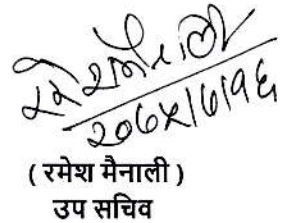 रमेश मैनाली
२०७५।७।१६
( रमेश मैनाली )
उप सचिव